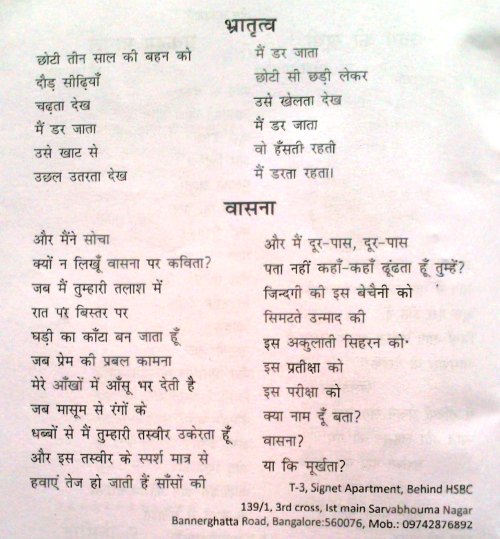 भ्रातृत्व
छोटी तीन साल की बहन को
दौड़ सीढ़ियाँ
चढ़ता देख
मैं डर जाता
उसे खाट से
उछल उतरता देख
मैं डर जाता
छोटी सी छड़ी लेकर
उसे खेलता देख
मैं डर जाता
वो हँसती रहती
मैं डरता रहता।
वासना
और मैंने सोचा
क्यों न लिखूँ वासना पर कविता?
जब मैं तुम्हारी तलाश में
रात पर बिस्तर पर
घड़ी का काँटा बन जाता हूँ
जब प्रेम की प्रबल कामना
मेरे आँखों में आँसू भर देती है
जब मासूम से रंगों के
धब्बों से मैं तुम्हारी तस्वीर उकेरता हूँ
और इस तस्वीर के स्पर्श मात्र से
हवाएं तेज हो जाती हैं साँसों की
और मैं दूर-पास, दूर-पास
पता नहीं कहाँ-कहाँ ढूंढता हूँ तुम्हें?
जिन्दगी की इस बेचैनी को
सिमटते उन्माद की
इस अकुलाती सिहरन को
इस प्रतीक्षा को
इस परीक्षा को
क्या नाम दूँ बता?
वासना?
या कि मूर्खता?
T-3, Signet Apartment, Behind HSBC
139/1, 3rd cross, Ist main Sarvabhouma Nagar
Bannerghatta Road, Bangalore:560076, Mob.: 09742876892